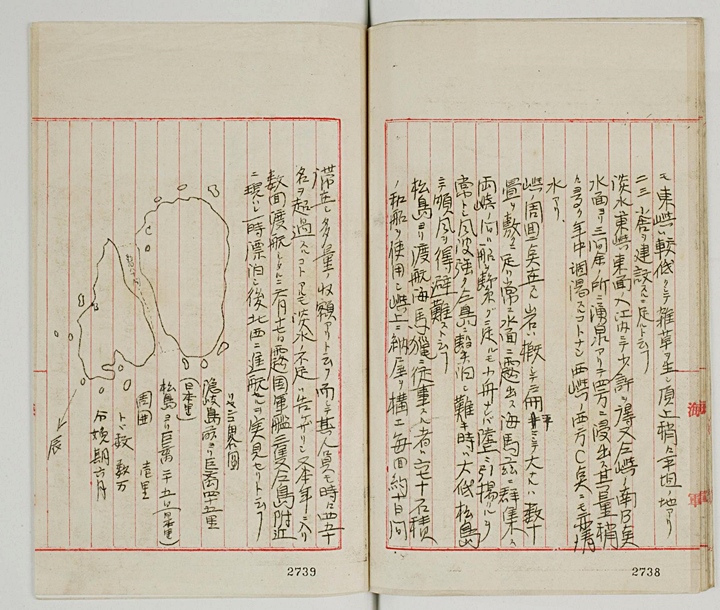 モ東嶼ハ較低クシテ雑草ヲ生シ頂上稍々平坦ノ地アリ
二三小舎ヲ建設スルニ足ルト云フ
淡水東嶼東面ノ入江内ニテ少許ヲ得又仝嶼ノ南B点
水面ヨリ三間余ノ所ニ湧泉アリテ四方ニ浸出ス其量稍
々多ク年中涸渇スルコトナシ西嶼ノ西方C点ニモ亦清
水アリ
嶼ノ周囲ニ点在スル岩ハ概シテ扁平ニシテ大ナルハ数十
畳ヲ敷クニ足リ常ニ水面ニ露出ス海馬茲ニ群集ス
両嶼ノ間ハ船ヲ繋クニ足ルモ小舟ナレハ陸上ニ引揚ルヲ
常トシ風波強ク仝島ニ繋泊シ難キ時ハ大低松島
ニテ順風ヲ得避難スト云フ
松島ヨリ渡航海馬猟ニ従事スル者ハ六七十石積
ノ和船ヲ使用シ嶼上ニ納屋ヲ構エ毎回約十日間
滞在シ多量ノ収額アリト云フ而テ其人員モ時々四五十
名ヲ超過スルコトアルモ淡水ノ不足ハ告ケザリシ又本年ニ入リ
数回渡航シタルニ六月十七日露国軍艦三隻仝島附近
ニ現ハレ一時漂泊シ後北西ニ進航セルヲ実見セリト云フ
隠岐島前ヨリ距离四十五里
(日本里)
松島ヨリ距离二十五里(日本里)
周囲 壱里
トド数 数万
分娩期六月
辰
海
軍
2739
2738